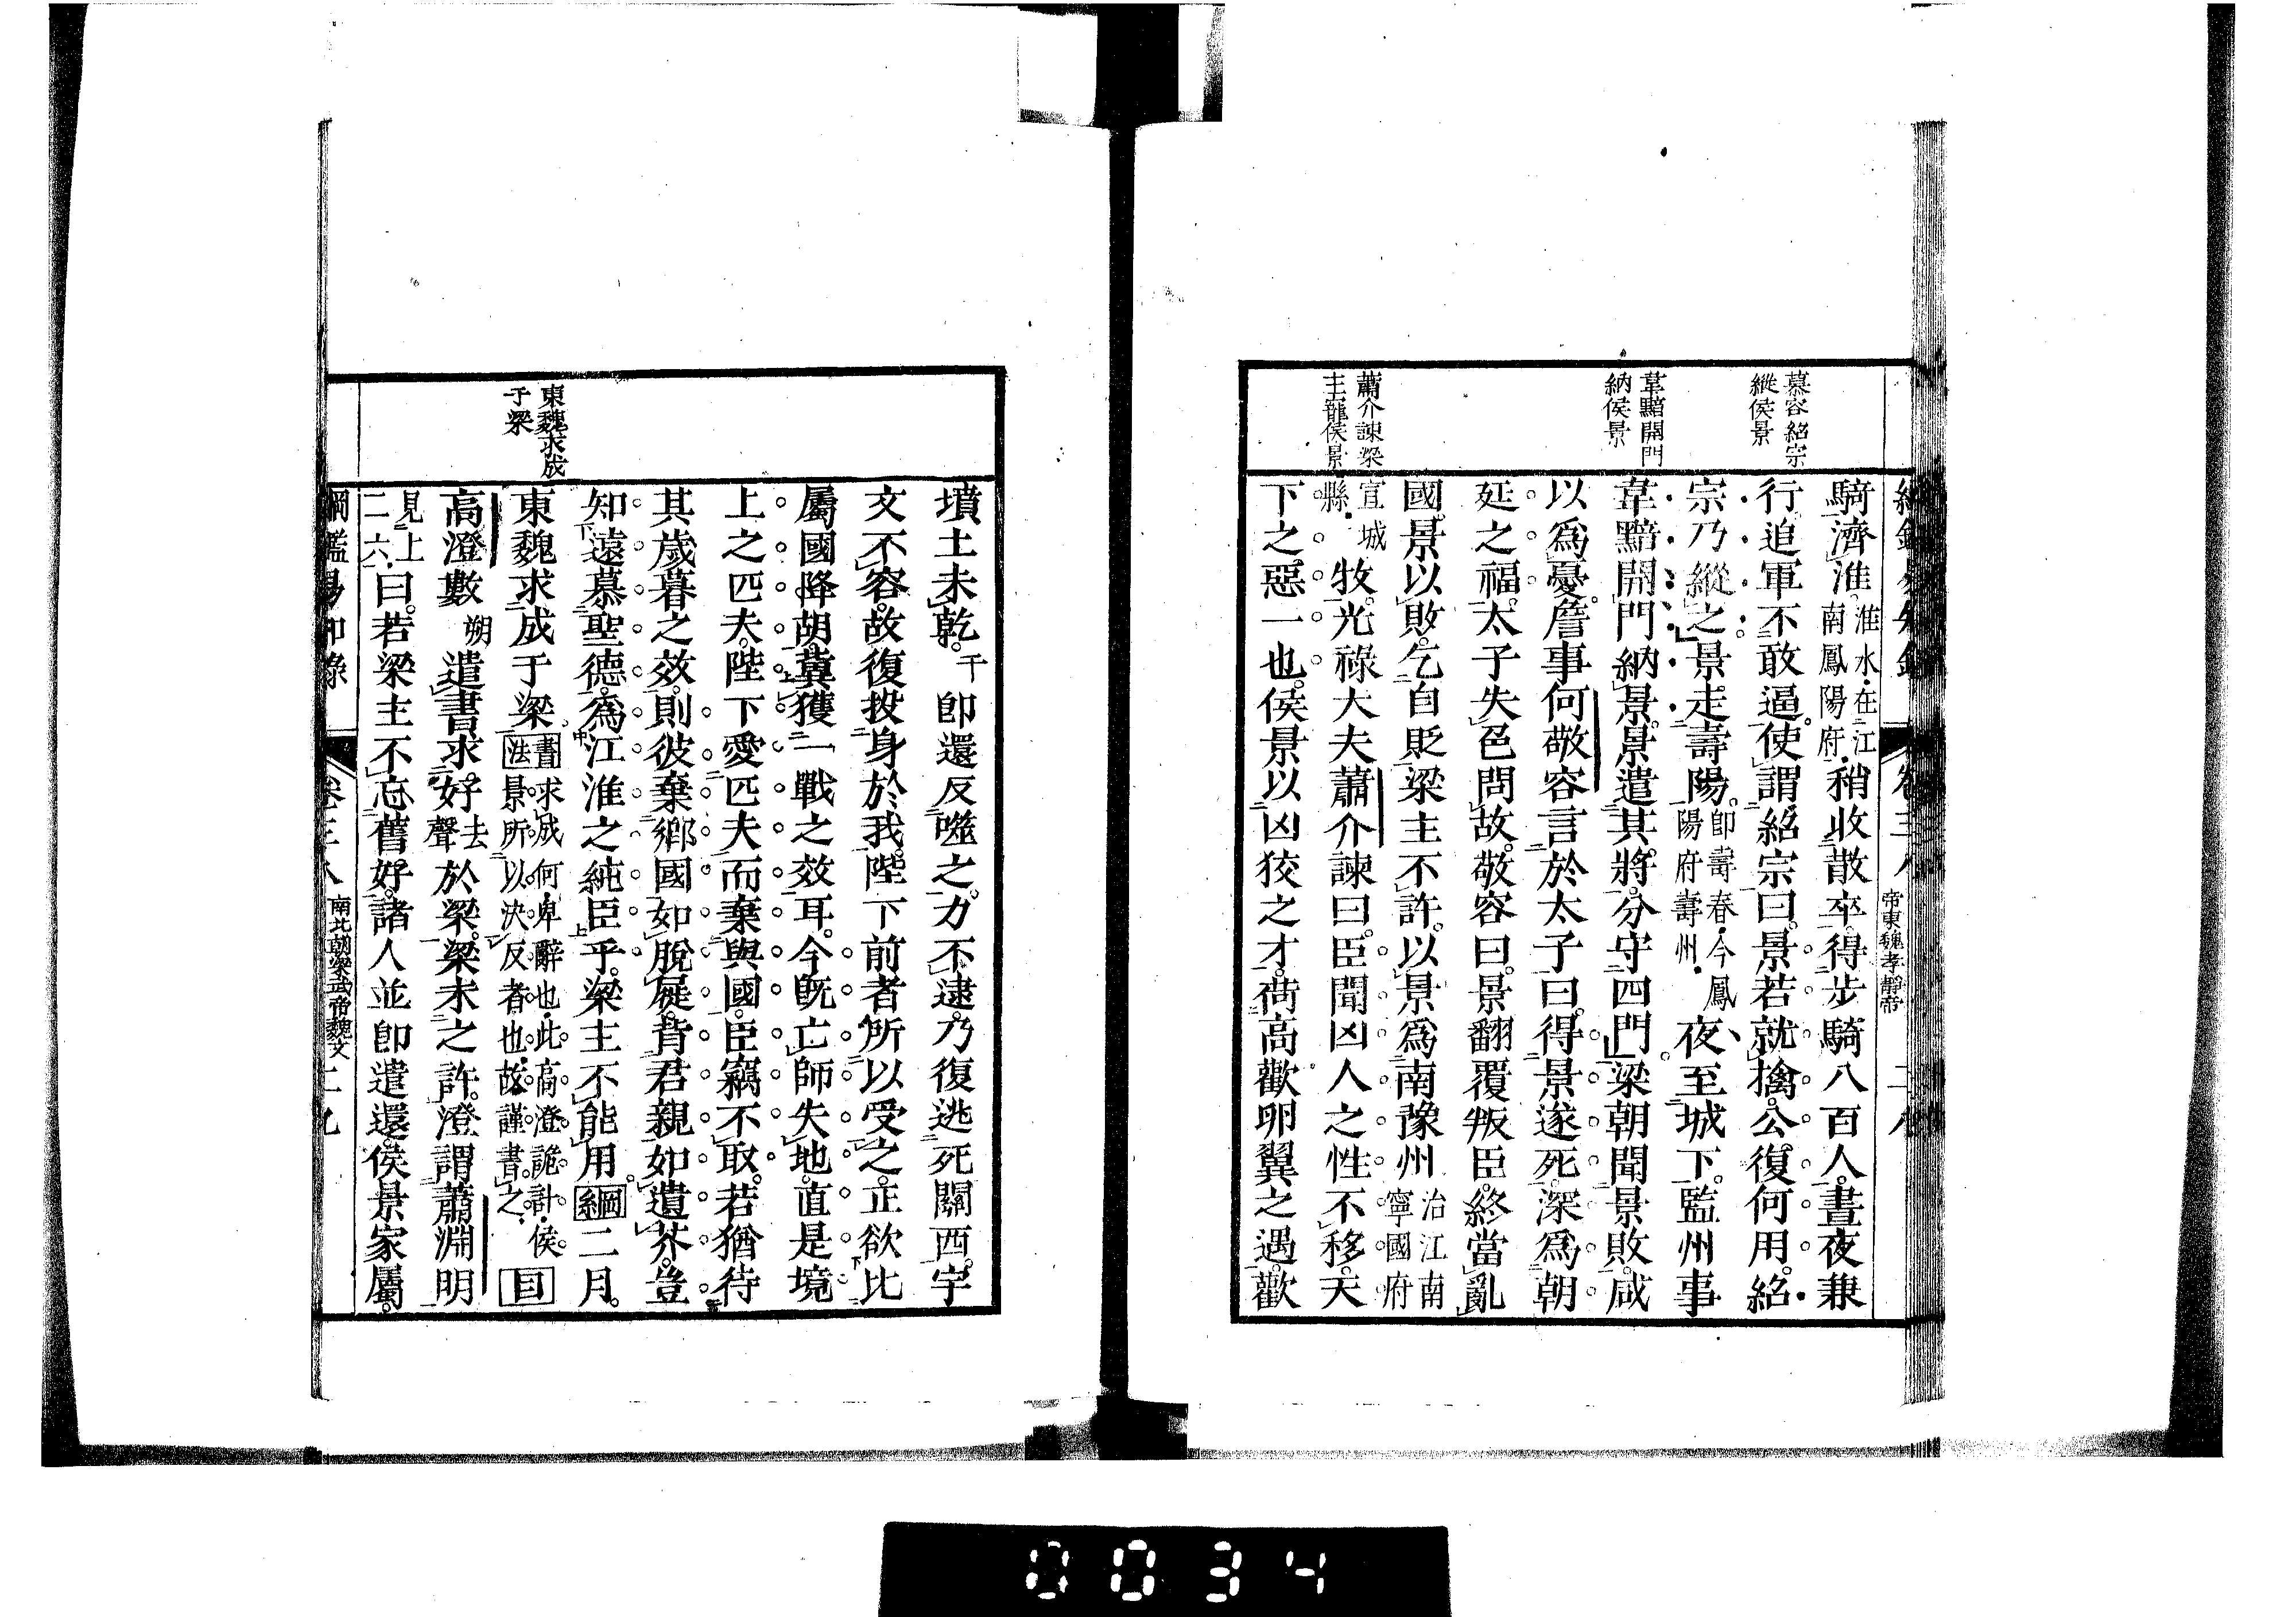 慕容紹宗
縱侯景
韋黯開門
納侯景
蕭介諫梁
主寵侯景
帝東魏孝靜帝
騎濟淮。淮水在江南鳳陽府。稍收散卒。得步騎八百人。晝夜兼
行。追軍不敢逼。使謂紹宗曰。景若就擒。公復何用。紹
宗乃縱之。景走壽陽。即壽春。今鳳陽府壽州。夜至城下。監州事
韋黯開門納景。景遣其將。分守四門。梁朝聞景敗。咸
以爲憂。詹事何敬容言於太子曰。得景遂死。深爲朝
廷之福。太子失色問故。敬容曰。景翻覆叛臣。終當亂
國。景以敗。乞自貶。梁主不許。以景爲南豫州治江南寧國府
宣城縣。牧。光祿大夫蕭介諫曰。臣聞凶人之性不移。天
下之惡一也。侯景以凶狡之才。荷高歡卵翼之遇。歡
東魏求成
于梁
墳土未乾。干即還反噬之。力不逮。乃復逃死關西。宇
文不容。故復投身於我。陛下前者所以受之。正欲比
屬國降胡。冀獲一戰之效耳。今既亡師失地。直是境
上之匹夫。陛下愛匹夫而棄與國。臣竊不取。若猶待
其歲暮之效。則彼棄鄉國如脫屣。背君親如遺芥。豈
知遠慕聖德。爲江淮之純臣乎。梁主不能用。綱二月。
東魏求成于梁書法求成何。卑辭也。此高澄詭計。侯景所以決反者也。故謹書之。目
高澄數朔遣書求好去聲於梁。梁未之許。澄謂蕭淵明
見上二六。曰。若梁主不忘舊好。諸人並即遣還。侯景家屬。
綱鑑易知錄 卷三八 南北朝梁武帝魏文 二九
0034